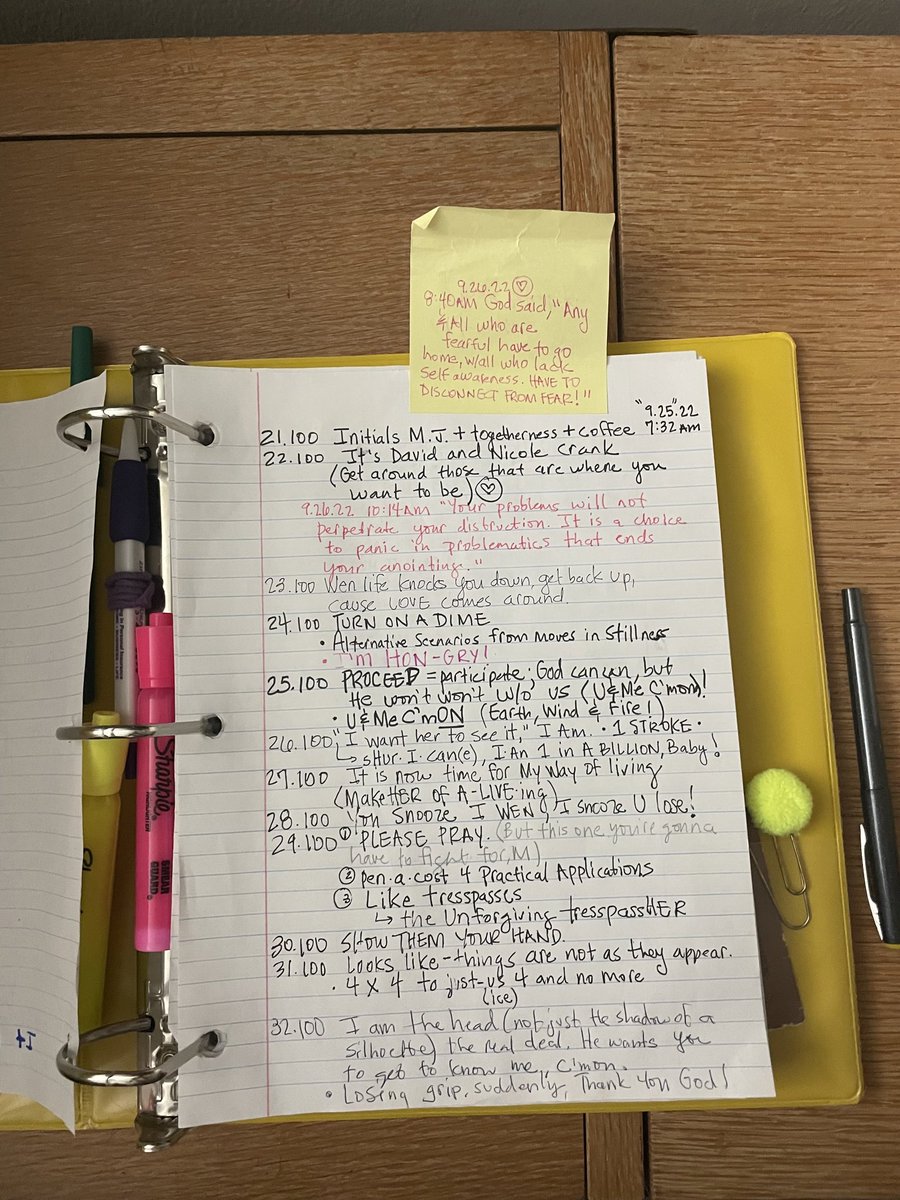 9.26.22 ♡
8:40AM God said, "Any
& All who are
fearful have to go
home, w/all who lack
Self awareness. HAVE TO
DISCONNECT FROM FEAR!"
"9.25".22
7:32 AM
21.100 Initials M.J. + togetherness + coffee
22.100 It's David and Nicole Crank
(Get around those that are where you
want to be) ♡
9.26.22 10:14AM "Your problems will not
perpedrate your distruction. It is a choice
to panic in problematics that ends
your anointing."
23.100 Wen life knocks you down, get back up,
cause LOVE comes around.
24.100 TURN ON A DIME
• Alternative Scenarios from moves in Stillness
• I'm HON-GRY!
25.100 PROCEED = participate; God can wen, but
He won't won't w/o us (U&Me C'mon)!
• U&Me C'mON (Earth, Wind & Fire!)
26.100 "I want her to see it," I Am. • 1 STROKE •
↳ shur. I. can(e), I An 1 in A BILLION, Baby!
27.100 It is now time for My way of living
(MakeHER of A-LIVE-ing)
28.100 You SNOOZE I WEN, I snooze U lose!
29.100 ① PLEASE PRAY. (But this one you're gonna
have to fight for, M)
② pen.a.cost 4 Practical Applications
③ Like tresspasses
↳ the Unforgiving tresspassHER
30.100 SHOW THEM YOUR HAND.
31.100 Looks like-things are not as they appear.
• 4 X 4 to just-us 4 and no more
(ice)
32.100 I am the head (not just the shadow of a
silhoette) the real deal. He wants you
to get to know me, c'mon.
• Losing grip, suddenly, Thank You God!
Sharpie
SMEAR
GUARD